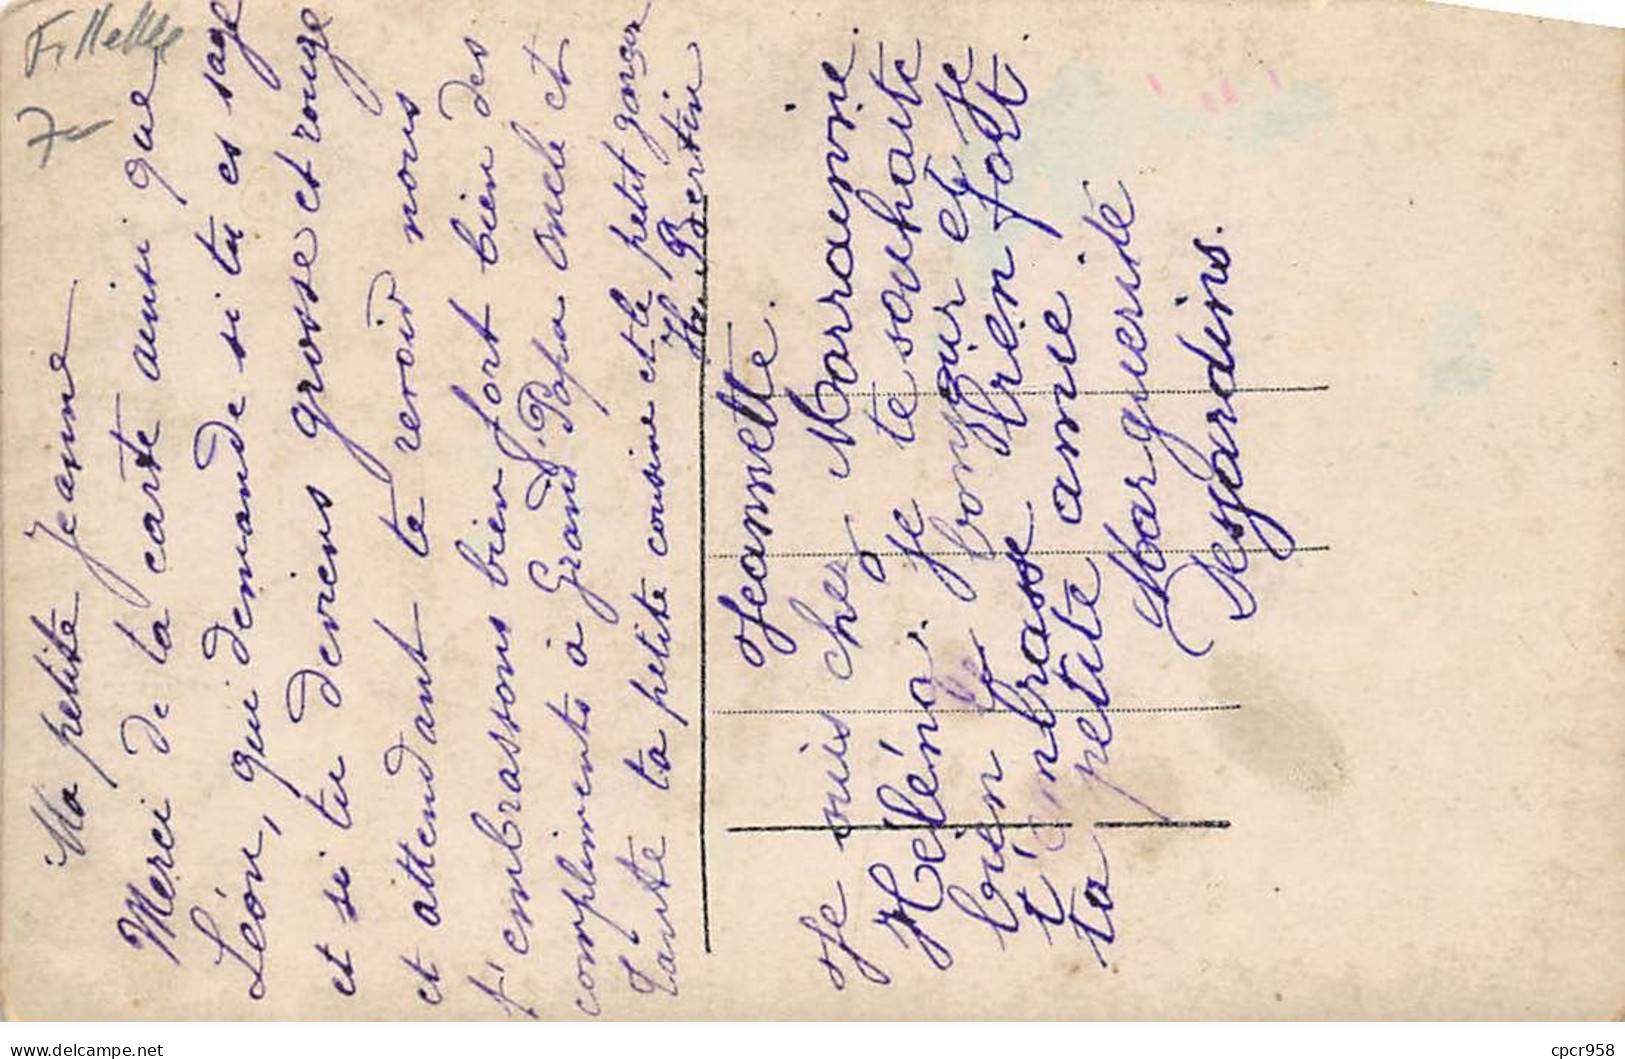 Fillettes
7
Ma petite Jeanne
Merci de ta carte ainsi que
Léon, qui demande si tu es sage
et si tu deviens grosse et rouge
et attendant te revoir nous
t'embrassons bien fort bien des
compliments à Grand Papa Oncle et
Tante ta petite cousine et le petit garçon
Bertin
Jeannette.
Je suis chez Marrainne.
Héléna. Je te souhaite
bien le bonjour et Je
t'embrasse bien fort.
ta petite amie
Marguerite
Desjardins.
delcampe.net
cpcr958